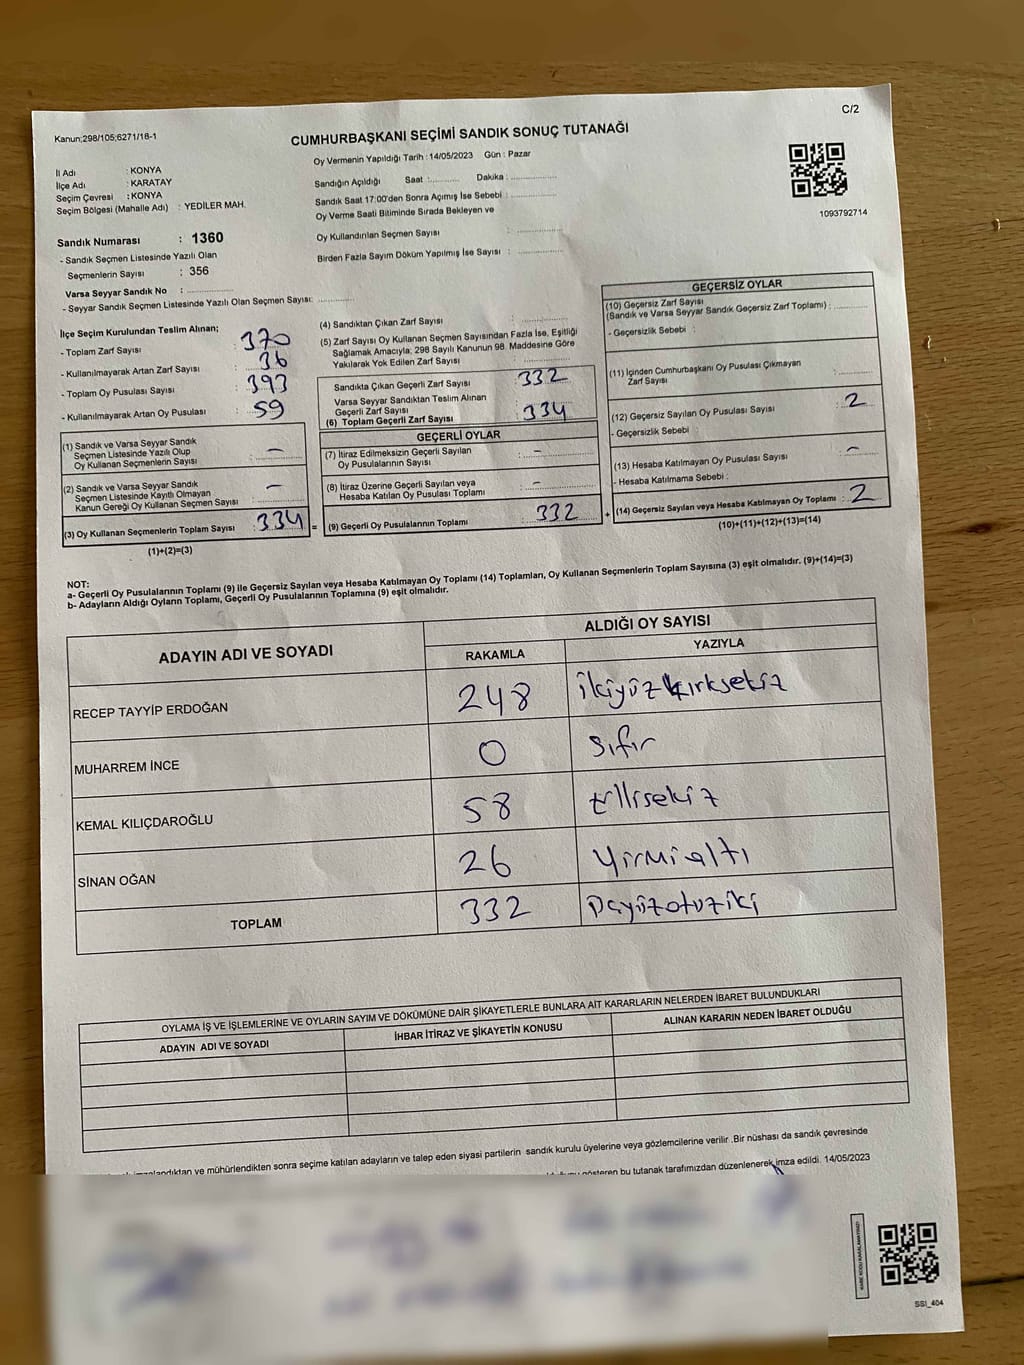 C/2
Kanun;298/105;6271/18-1
CUMHURBAŞKANI SEÇİMİ SANDIK SONUÇ TUTANAĞI
Oy Vermenin Yapıldığı Tarih :14/05/2023 Gün : Pazar
İl Adı : KONYA
İlçe Adı : KARATAY
Seçim Çevresi : KONYA
Seçim Bölgesi (Mahalle Adı) : YEDİLER MAH.
Sandığın Açıldığı Saat :........... Dakika : ................
Sandık Saat 17:00'den Sonra Açımış İse Sebebi : ................
Oy Verme Saati Bitiminde Sırada Bekleyen ve
Oy Kullandırılan Seçmen Sayısı : ................
Birden Fazla Sayım Döküm Yapılmış İse Sayısı : ................
1093792714
Sandık Numarası : 1360
- Sandık Seçmen Listesinde Yazılı Olan
Seçmenlerin Sayısı : 356
Varsa Seyyar Sandık No : ................
- Seyyar Sandık Seçmen Listesinde Yazılı Olan Seçmen Sayısı: ............
İlçe Seçim Kurulundan Teslim Alınan;
- Toplam Zarf Sayısı : 370
- Kullanılmayarak Artan Zarf Sayısı : 36
- Toplam Oy Pusulası Sayısı : 393
- Kullanılmayarak Artan Oy Pusulası : 59
(1) Sandık ve Varsa Seyyar Sandık
Seçmen Listesinde Yazılı Olup
Oy Kullanan Seçmenlerin Sayısı : -
(2) Sandık ve Varsa Seyyar Sandık
Seçmen Listesinde Kayıtlı Olmayan
Kanun Gereği Oy Kullanan Seçmen Sayısı : -
(3) Oy Kullanan Seçmenlerin Toplam Sayısı : 334 =
(1)+(2)=(3)
(4) Sandıktan Çıkan Zarf Sayısı : ................
(5) Zarf Sayısı Oy Kullanan Seçmen Sayısından Fazla İse, Eşitliği
Sağlamak Amacıyla; 298 Sayılı Kanunun 98. Maddesine Göre
Yakılarak Yok Edilen Zarf Sayısı : ................
Sandıkta Çıkan Geçerli Zarf Sayısı : 332
Varsa Seyyar Sandıktan Teslim Alınan
Geçerli Zarf Sayısı :
(6) Toplam Geçerli Zarf Sayısı : 334
GEÇERLİ OYLAR
(7) İtiraz Edilmeksizin Geçerli Sayılan
Oy Pusulalarının Sayısı : -
(8) İtiraz Üzerine Geçerli Sayılan veya
Hesaba Katılan Oy Pusulası Toplamı : -
(9) Geçerli Oy Pusulalarının Toplamı : 332 +
GEÇERSİZ OYLAR
(10) Geçersiz Zarf Sayısı
(Sandık ve Varsa Seyyar Sandık Geçersiz Zarf Toplamı) : ............
- Geçersizlik Sebebi :
(11) İçinden Cumhurbaşkanı Oy Pusulası Çıkmayan
Zarf Sayısı : ............
(12) Geçersiz Sayılan Oy Pusulası Sayısı : 2
- Geçersizlik Sebebi :
(13) Hesaba Katılmayan Oy Pusulası Sayısı : -
- Hesaba Katılmama Sebebi :
(14) Geçersiz Sayılan veya Hesaba Katılmayan Oy Toplamı : 2
(10)+(11)+(12)+(13)=(14)
NOT:
a- Geçerli Oy Pusulalarının Toplamı (9) ile Geçersiz Sayılan veya Hesaba Katılmayan Oy Toplamı (14) Toplamları, Oy Kullanan Seçmenlerin Toplam Sayısına (3) eşit olmalıdır. (9)+(14)=(3)
b- Adayların Aldığı Oyların Toplamı, Geçerli Oy Pusulalarının Toplamına (9) eşit olmalıdır.
ADAYIN ADI VE SOYADI
ALDIĞI OY SAYISI
RAKAMLA YAZIYLA
RECEP TAYYİP ERDOĞAN 248 ikiyüzkırksekiz
MUHARREM İNCE 0 Sıfır
KEMAL KILIÇDAROĞLU 58 Ellisekiz
SİNAN OĞAN 26 Yirmialtı
TOPLAM 332
OYLAMA İŞ VE İŞLEMLERİNE VE OYLARIN SAYIM VE DÖKÜMÜNE DAİR ŞİKAYETLERLE BUNLARA AİT KARARLARIN NELERDEN İBARET BULUNDUKLARI
ADAYIN ADI VE SOYADI İHBAR İTİRAZ VE ŞİKAYETİN KONUSU ALINAN KARARIN NEDEN İBARET OLDUĞU
ve mühürlendikten sonra seçime katılan adayların ve talep eden siyasi partilerin sandık kurulu üyelerine veya gözlemcilerine verilir .Bir nüshası da sandık çevresinde
gösteren bu tutanak tarafımızdan düzenlenerek imza edildi. 14/05/2023
SSI_404